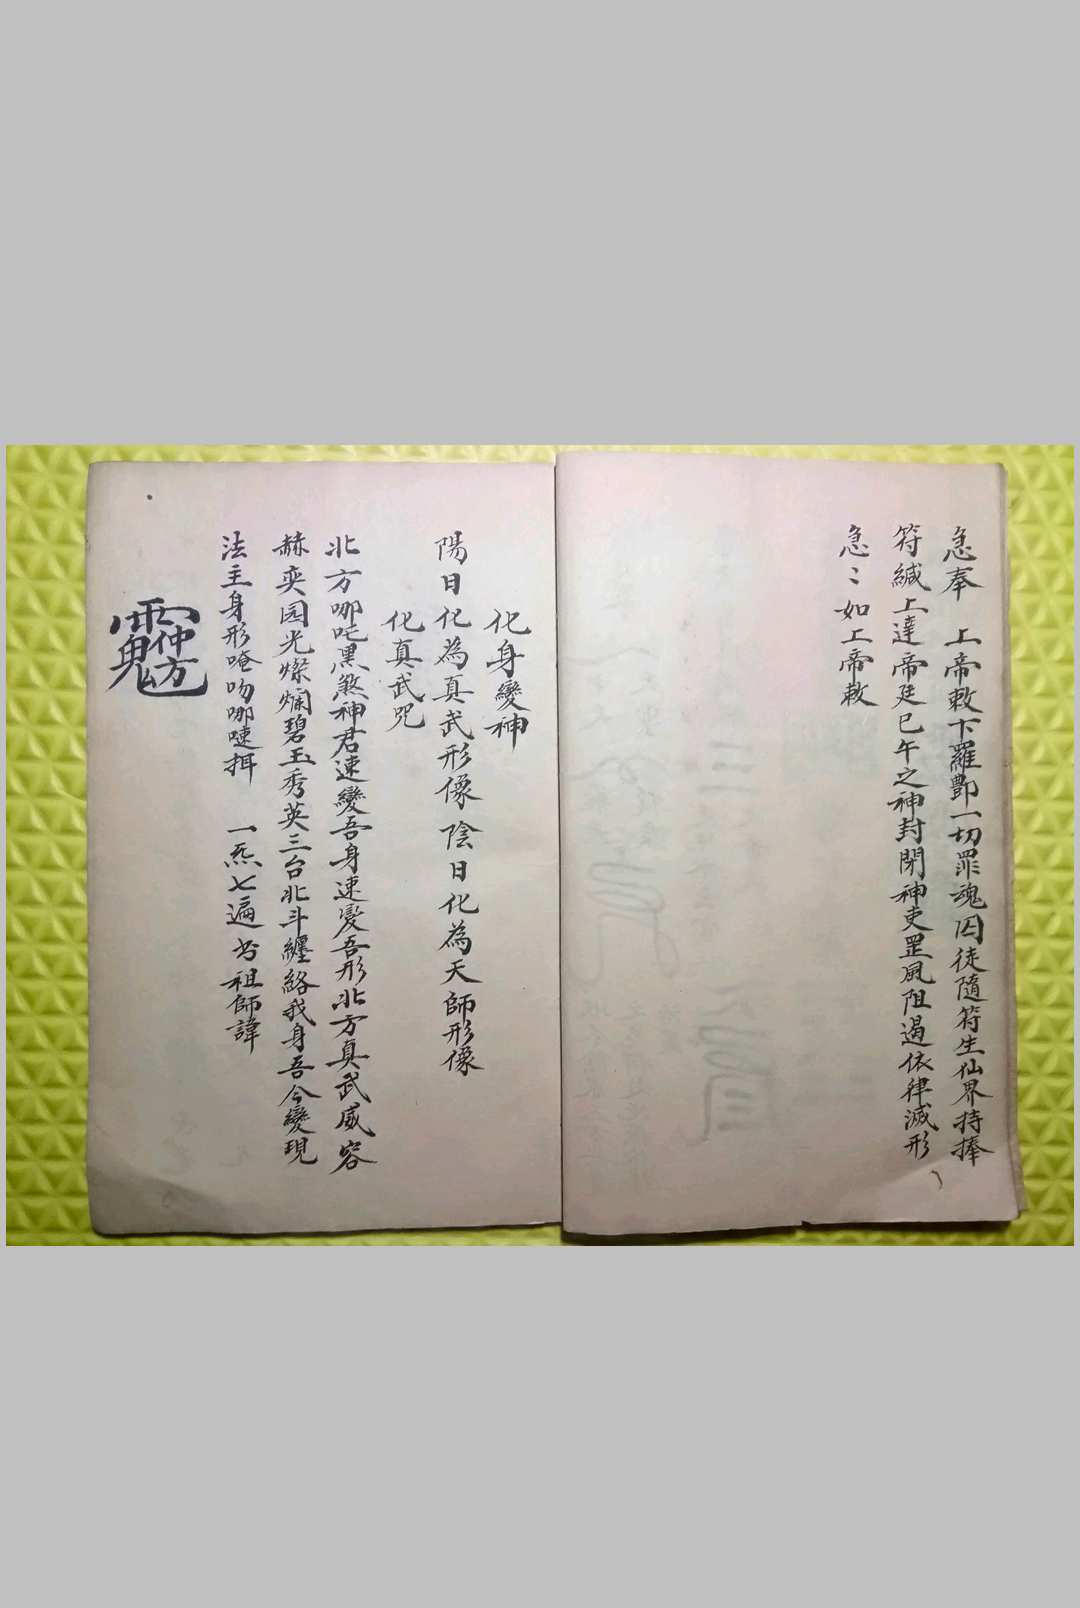 急奉　上帝敕下羅酆一切罪魂囚徒隨符生仙界持捧
符緘上達帝廷巳午之神封閉神吏罡風阻遏依律滅形
急〻如上帝敕
化身變神
陽日化為真武形像陰日化為天師形像
化真武咒
北方哪吒黑煞神君速變吾身速变吾形北方真武威容
赫奕园光燦爛碧玉秀英三台北斗纏絡我身吾今變現
法主身形唵吻哪㖀挕　一炁七遍书祖師諱